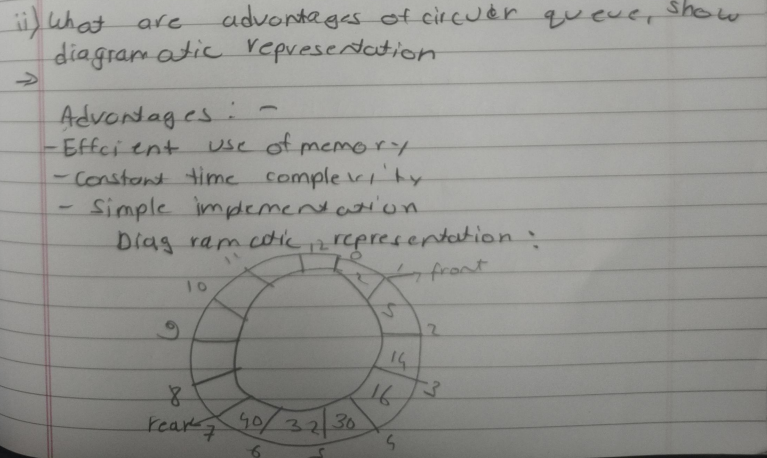 ii) What are advantages of circuer queue, show
diagramatic representation
→
Advantages : -
- Effcient use of memory
- constant time complexity
- Simple implementation
Diagramatic representation :
11 12 0
10 2 1 → front
9 5 2
14
8 16 3
rear 7 40 32 30 4
6 5